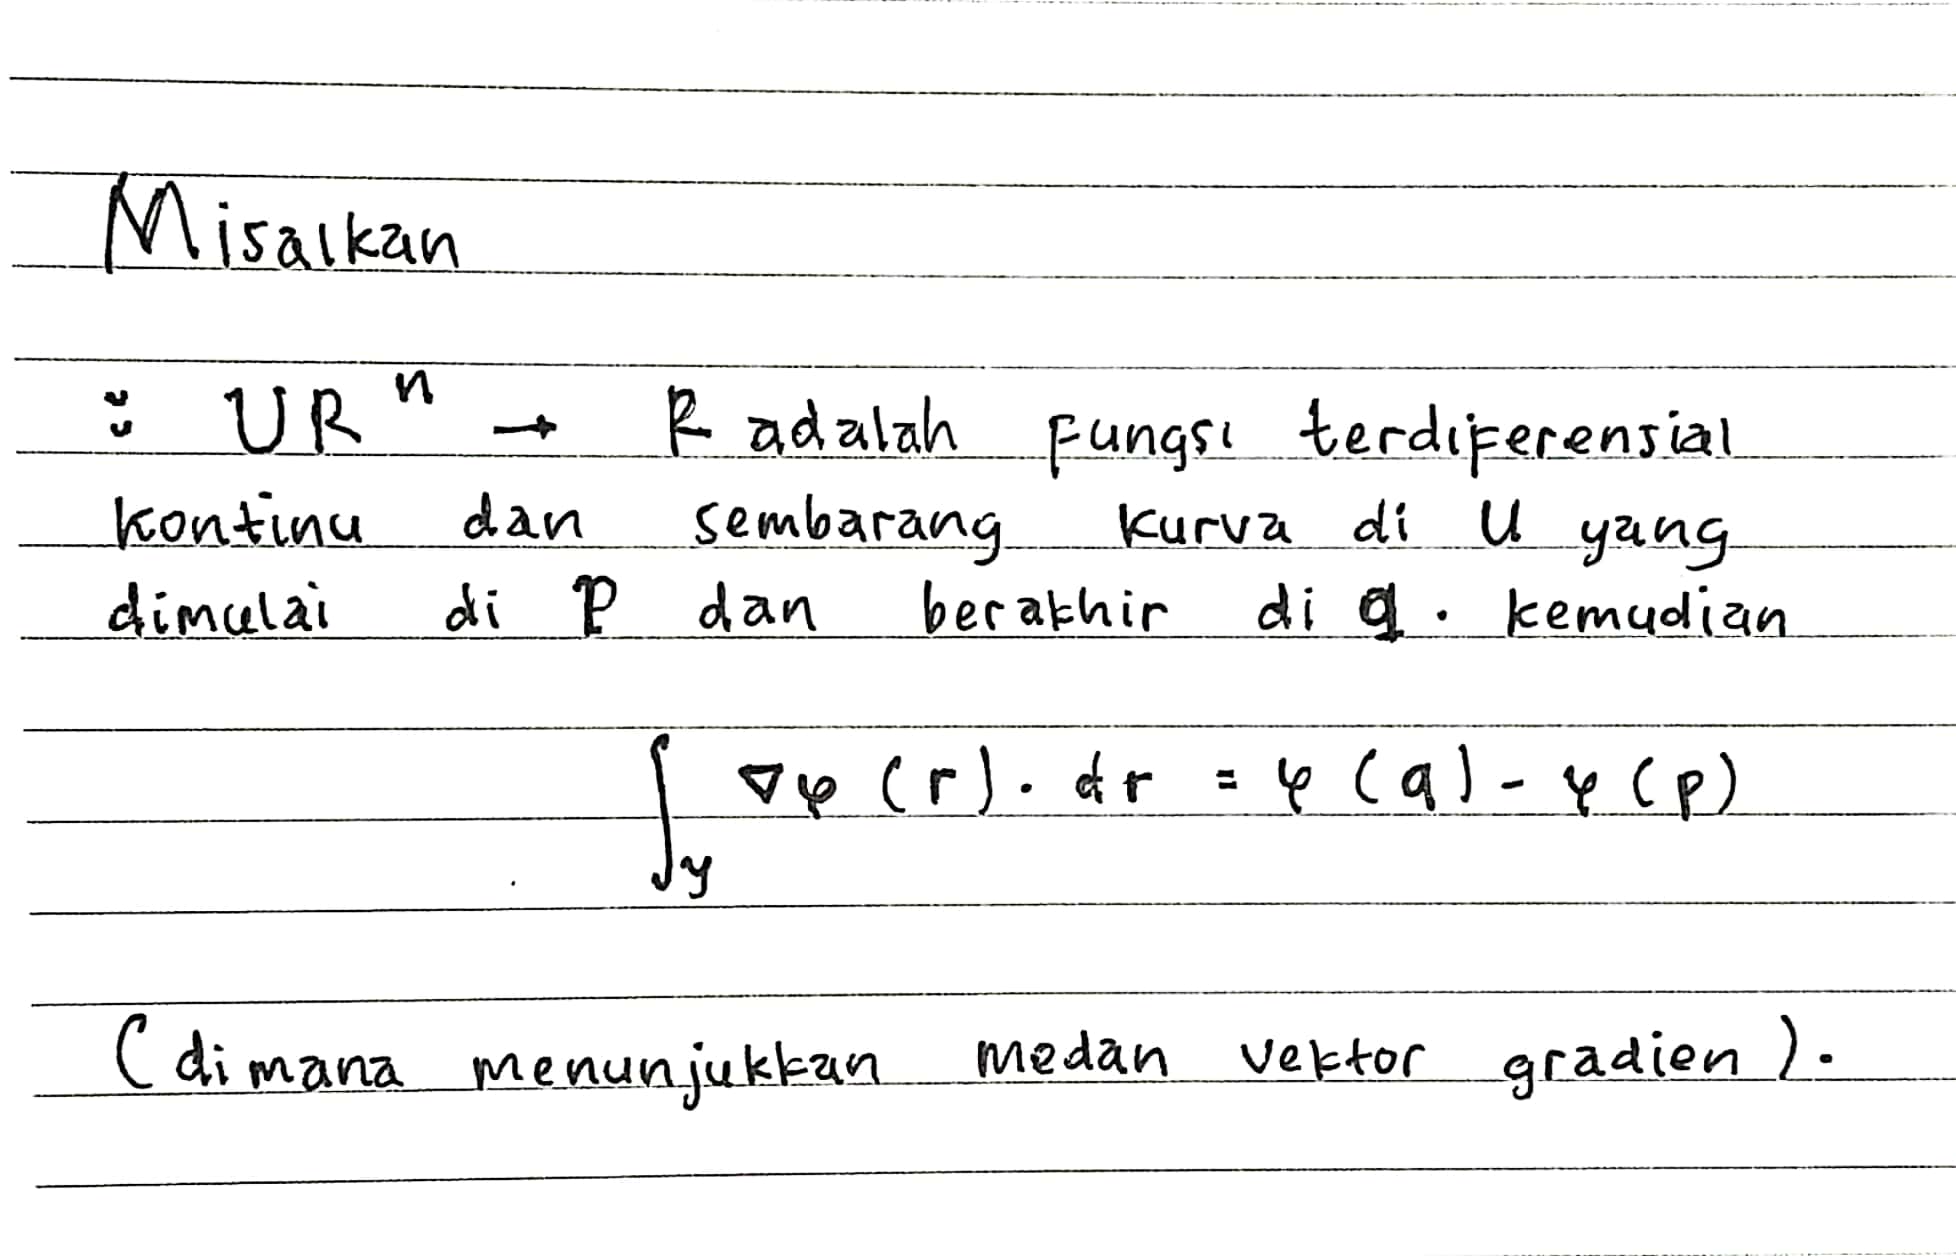 Misalkan
: U R^n → R adalah fungsi terdiferensial
kontinu dan sembarang kurva di U yang
dimulai di P dan berakhir di q. kemudian
∫_y ∇φ (r). dr = φ (q) - φ (p)
(dimana menunjukkan medan vektor gradien).